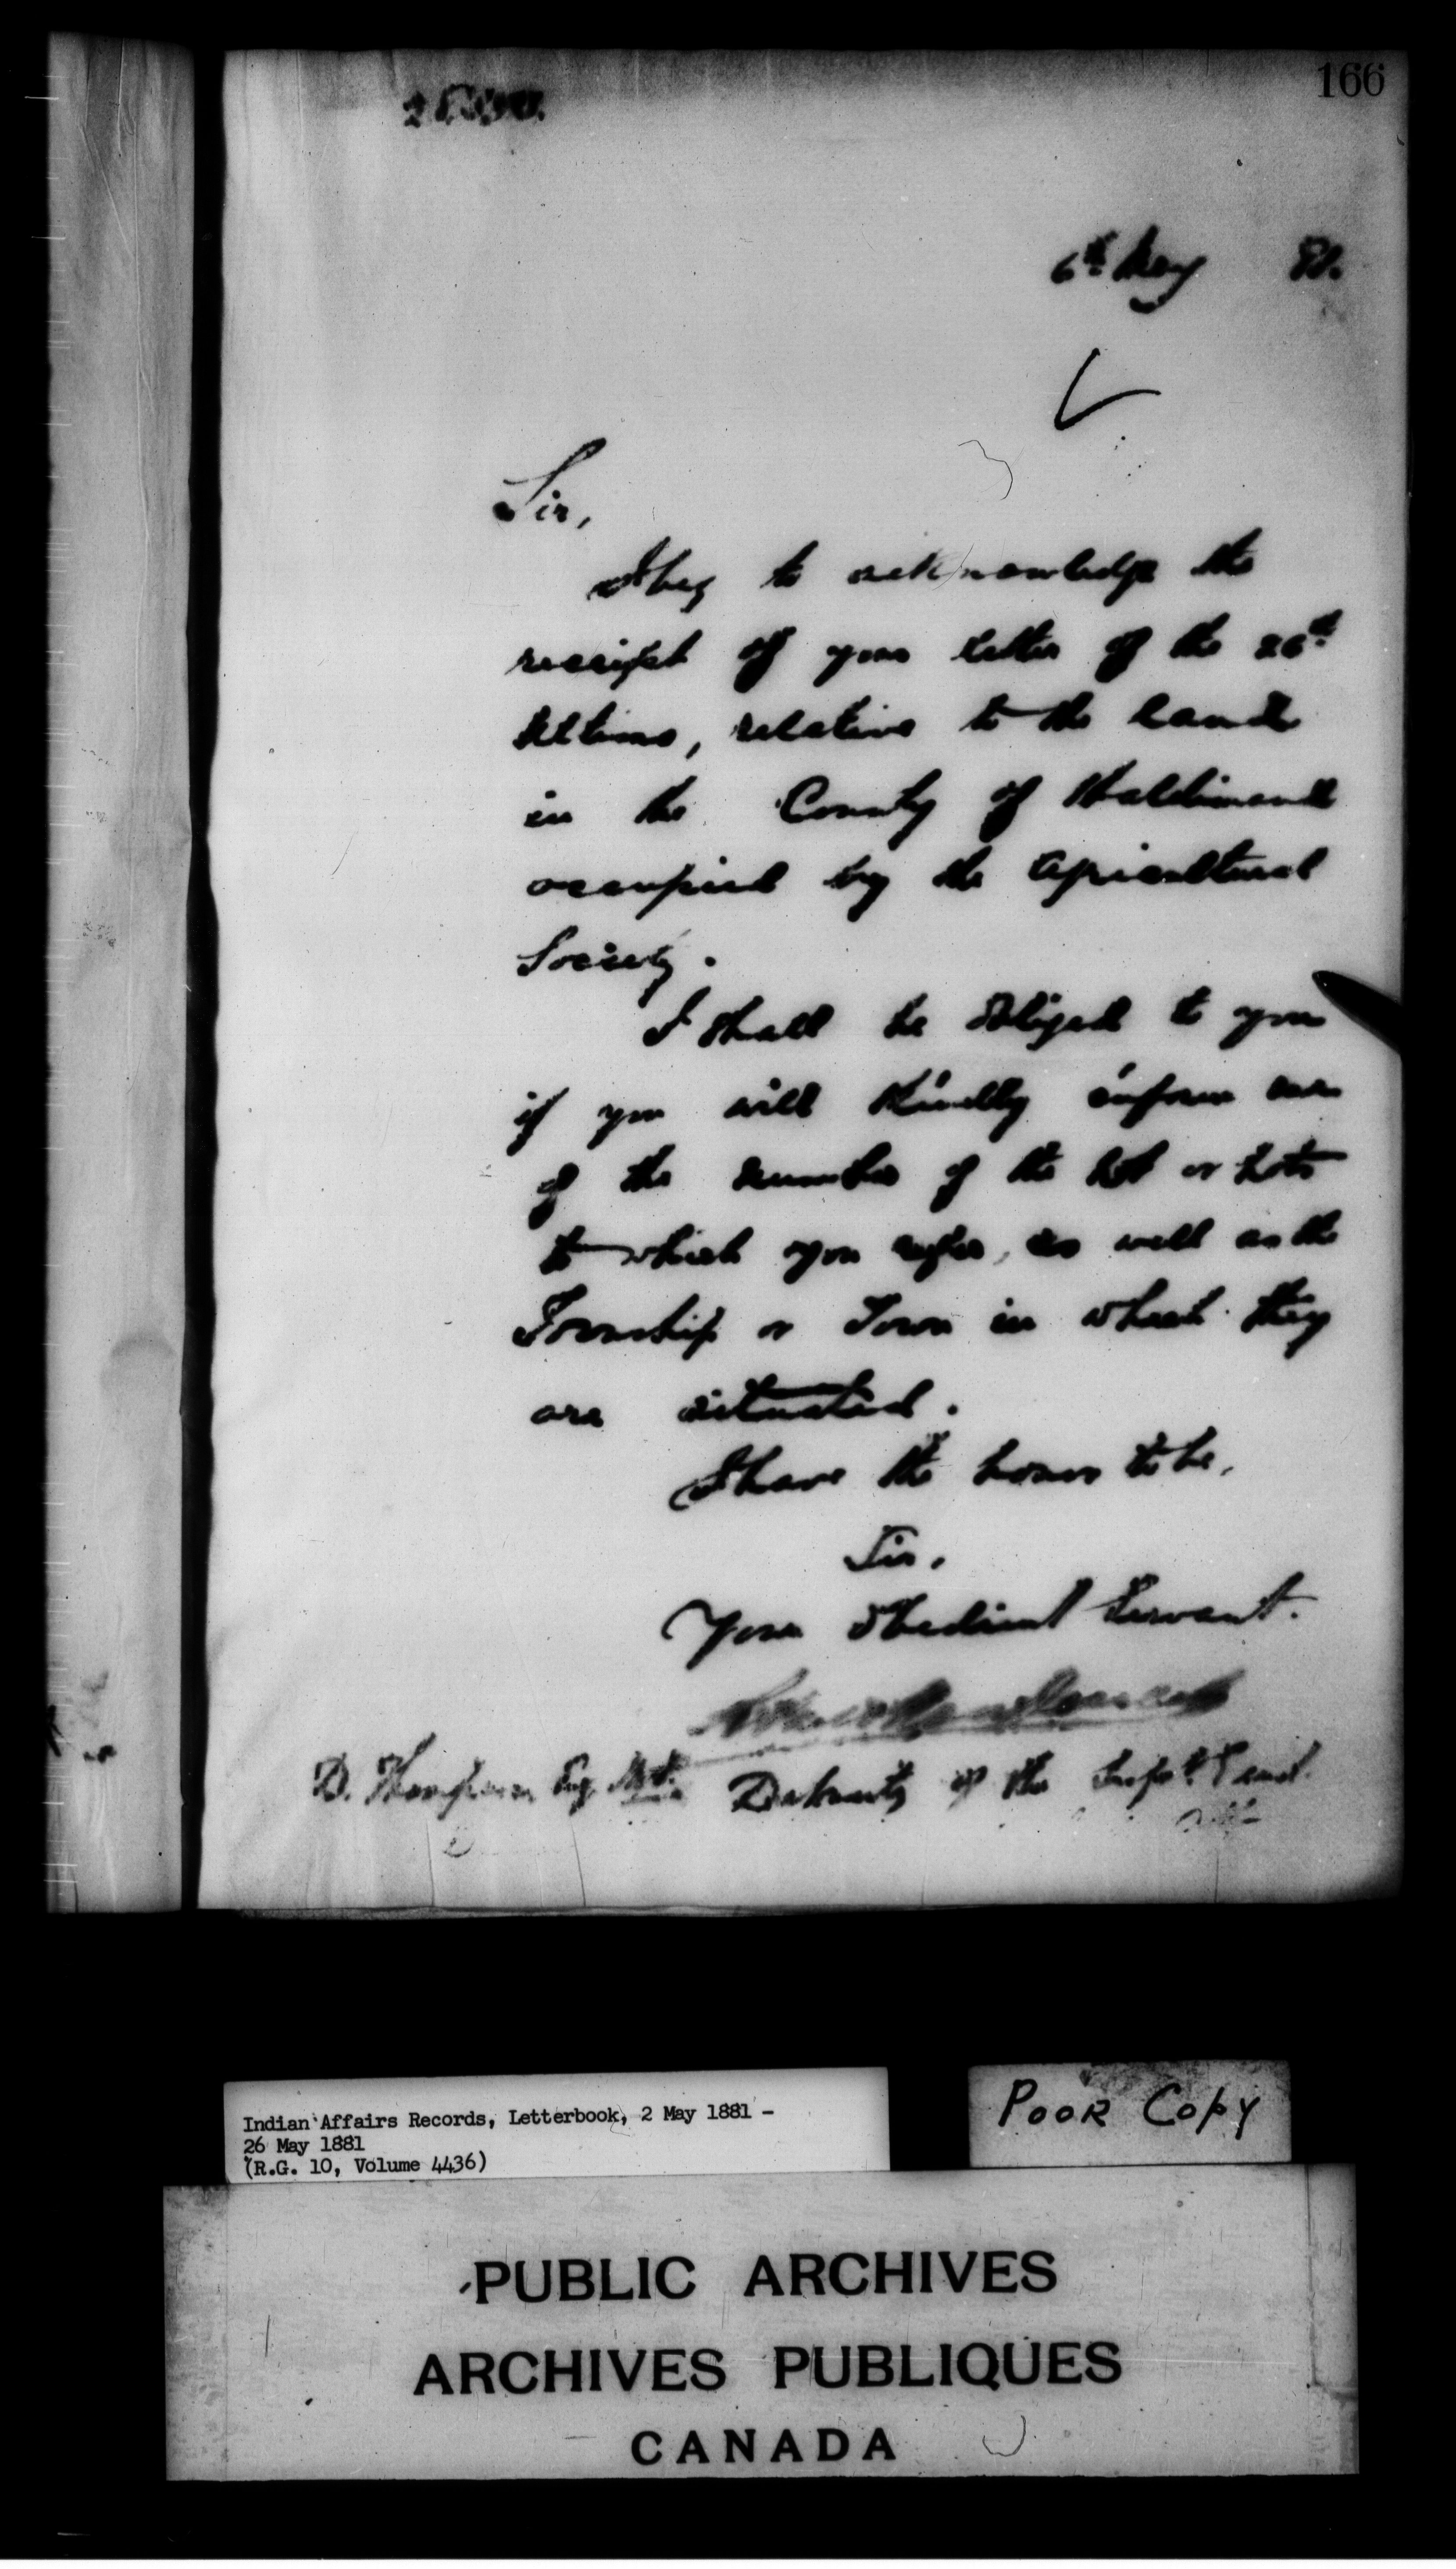 166
6th May 81.
Sir,
I beg to acknowledge the
receipt of your letter of the 26th
Ultimo, relative to the land
in the County of Haldimand
occupied by the Agricultural
Society.
I shall be obliged to you
if you will kindly inform me
of the number of the Lot or Lots
to which you refer, as well as the
Township or Town in which they
are situated.
I have the honor to be,
Sir,
Your obedient Servant.
D. Thompson Esq. M.P. Deputy of the Supt. Genl.
Indian Affairs Records, Letterbook, 2 May 1881 -
26 May 1881
(R.G. 10, Volume 4436)
POOR COPY
PUBLIC ARCHIVES
ARCHIVES PUBLIQUES
CANADA